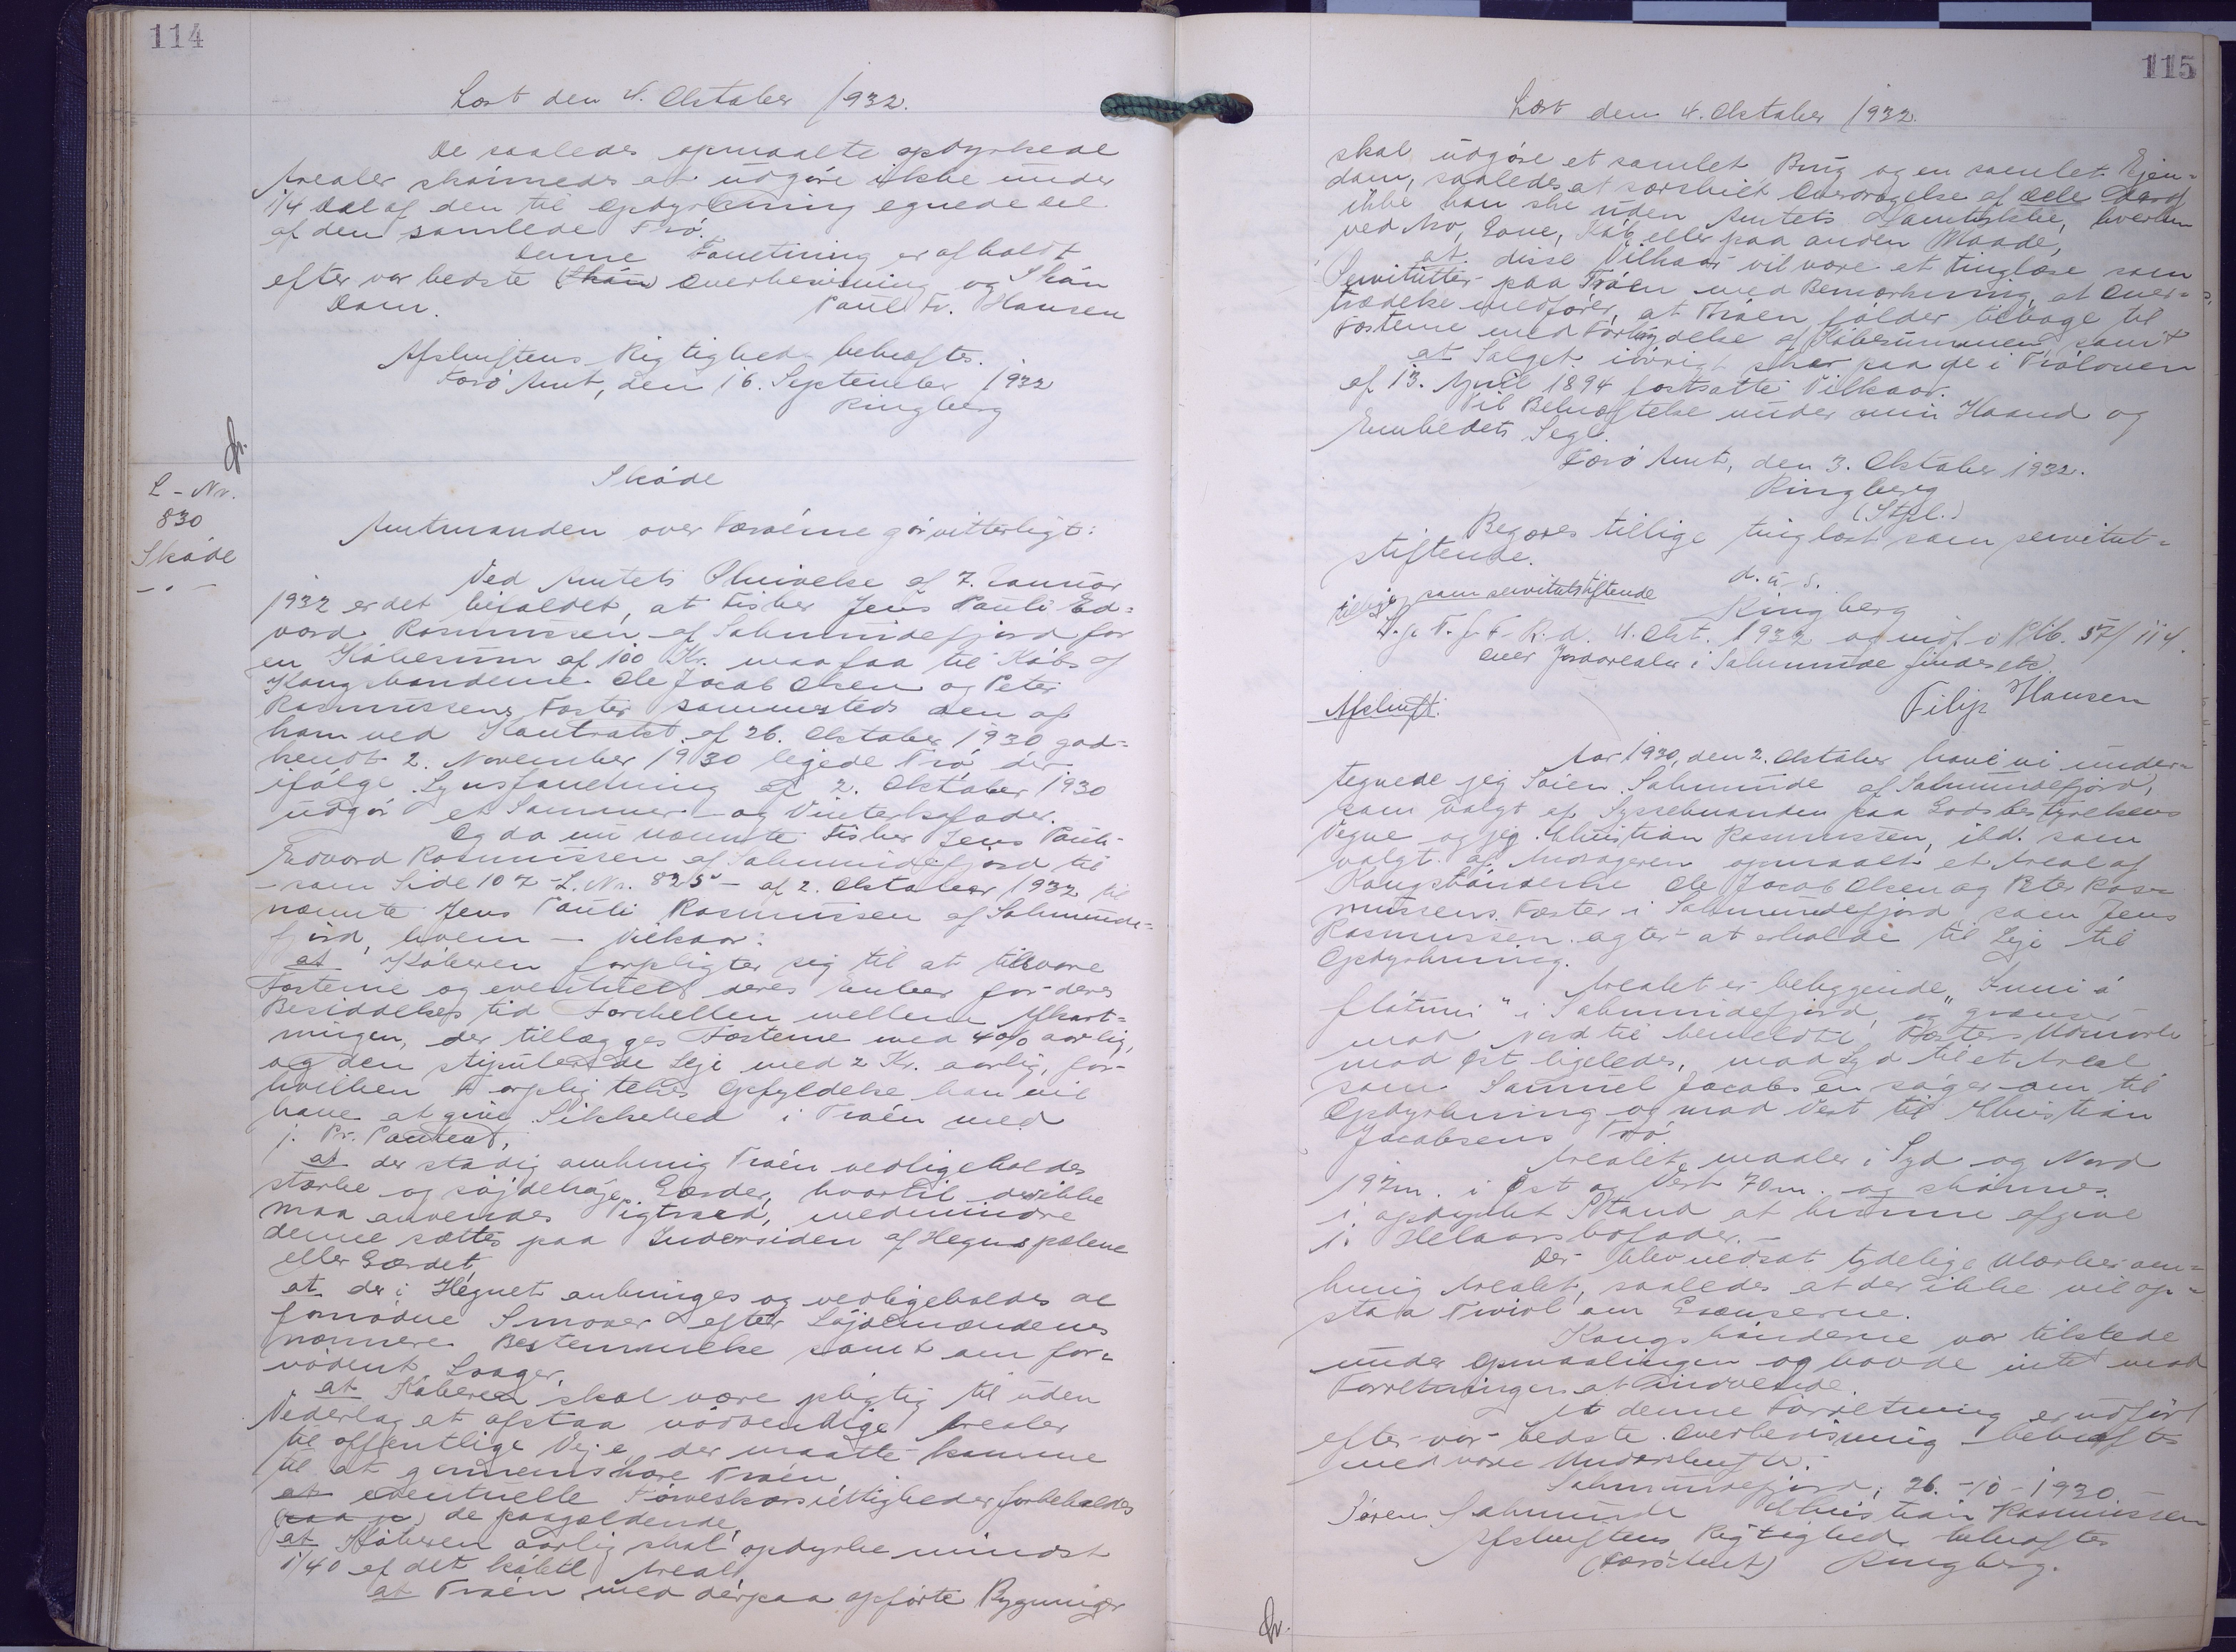 114
Læst den 4. Oktober 1932.
De saaledes opmaalte opdyrkede
Arealer skönnedes at udgöre ikke under
1/4 Del af den til Opdyrkning egnede Del
af den samlede Trö.
Denne Forretning er afholdt
efter vor bedste (Skön) Overbevisning og Skön
Dom. Paul Fr. Hansen
Afskriftens Rigtighed bekræftes.
Færö Amt, den 16. September 1932
Ringberg
L-Nr.
830
Sköde
Sköde
Amtmanden over Færöerne gör vitterligt:
Ved Amtets Skrivelse af 7. Januar
1932 er det bifaldet, at Fisker Jens Pauli Ed=
vard Rasmussen af Sahmundefjord for
en Köbesum af 100 Kr. maa faa til Købs af
Kongsbönderne Ole Jacob Olsen og Peter
Rasmussens Fæster sammesteds den af
ham ved Kontrakt af 26. Oktober 1930 god=
kendt 2. November 1930 lejede Trö, der
ifölge Synsforretning af 2. Oktober 1930
udgör et Sommer- og Vinterkofoder.
Og da nu nævnte Fisker Jens Pauli
Edvard Rasmussen af Sahmundefjord til
- som Side 107 - L. Nr. 825 - af 2. Oktober 1932 til
nævnte Jens Pauli Rasmussen af Sahmunde=
fjord, hvem - Vilkaar:
at Köberen forpligter sig til at tilsvare
Fæsterne og eventuelt deres Enker for deres
Besiddelses tid Forskellen mellem Afkast=
ningen, der tillægges Fæsterne med 4% aarlig,
og den stipulerede Leje med 2 Kr. aarlig, for
hvilken Forpligtelses Opfyldelse han vil
have at give Sikkerhed i Tröen med
1. Pr. Panteret,
at der stadig omkring Tröen vedligeholdes
stærke og söjdehöje Gærder, hvortil der ikke
maa anvendes Pigtraad, medmindre
denne sættes paa Indersiden af Hegnspælene
eller Gærdet,
at der i Hegnet anbringes og vedligeholdes de
fornödne Smover efter Löjdemændenes
nærmere Bestemmelse samt om for=
nödent Leager,
at Köberen skal være pligtig til uden
Vederlag at afstaa nödvendige Arealer
til offentlige Veje, der maatte komme
til at gennemskære Tröen,
at eventuelle Törveskærsrettigheder forbeholdes
(paa p) de paagældende
at Köberen aarlig skal opdyrke mindst
1/40 af det köbte Areal
at Tröen med derpaa opförte Bygninger
115
Læst den 4. Oktober 1932.
skal udgöre et samlet Brug og en samlet Ejen=
dom, saaledes at særskilt Overdragelse af Dele deraf
ikke kan ske uden Amtets Samtykke, hverken
ved Arv, Gave, Köb eller paa anden Maade,
at disse Vilkaar vil være at tinglæse som
Servitutter paa Tröen med Bemærkning, at Over=
trædelse medförer, at Tröen falder tilbage til
Fæsterne med Fortabelse af Köbesummen, samt
at Salget iövrigt sker paa de i Tröloven
af 13. April 1894 fastsatte Vilkaar.
Til Bekræftelse under min Haand og
Embedets Segl.
Færö Amt, den 3. Oktober 1932.
Ringberg
(Stpl.)
Begæres tillige tinglæst som servitut=
stiftende.
d. u. s.
Ringberg
tillige som servitutstiftende
L. f. T. f. F. R. d. 4. Okt. 1932 og indf. i Ptb. 57/114.
Over Jordarealer i Sahmunde findes etc.
Filip Hansen
Afskrift.
Aar 1930, den 2. Oktober have vi under=
tegnede jeg Sören Sahmunde af Sahmundefjord,
som valgt af Sysselmanden paa Godsbestyrelsens
Vegne og jeg Christian Rasmussen, ibd. som
valgt af Andrageren opmaalt et Areal af
Kongsbönderne Ole Jacob Olsen og Peter Ras=
mussens Fæster i Sahmundefjord, som Jens
Rasmussen agter at erholde til Leje til
Opdyrkning.
Arealet er beliggende „Inni á
fløtuni" i Sahmundefjord, og grænser
mod Nord til bemeldte Fæsters Udmark
mod Öst ligeledes, mod Syd til et Areal
som Samuel Jacobsen söger om til
Opdyrkning og mod Vest til Christian
Jacobsens Trö.
Arealet maaler i Syd og Nord
192m. i Öst og Vest 70m. og skönnes
i opdyrket Stand at kunne afgive
1. Helaarskofoder.
Der blev nedsat tydelige Mærker om=
kring Arealet, saaledes at der ikke vil op=
staa Tvivl om Grænserne.
Kongsbönderne var tilstede
under Opmaalingen og havde intet mod
Forretningen at indvende.
At denne Forretning er udfört
efter vor bedste Overbevisning bekræftes
med vore Underskrifter.
Sahmundefjord, 26.-10-1930
Sören Sahmunde Christian Rasmussen
Afskriftens Rigtighed bekræftes
(Færö Amt) Ringberg.